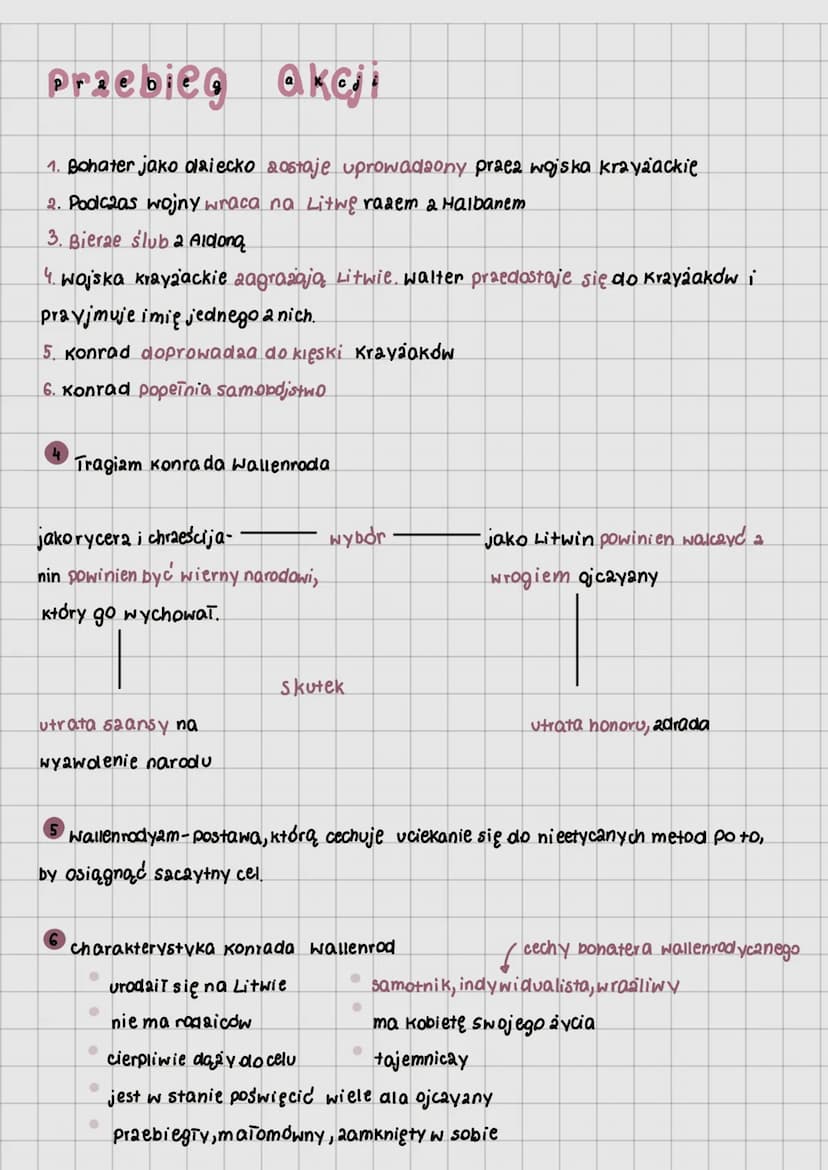 przebieg akcji
1. Bohater jako dziecko zostaje uprowadzony przez wojska krzyżackie
2. Podczas wojny wraca na Litwę razem z Halbanem
3. Bierze ślub z Aldoną
4. Wojska krzyżackie zagrażają Litwie. Walter przedostaje się do Krzyżaków i
przyjmuje imię jednego z nich.
5. Konrad doprowadza do klęski Krzyżaków
6. Konrad popełnia samobójstwo
4 Tragizm Konrada Wallenroda
jako rycerz i chrześcija- wybór jako Litwin powinien walczyć z
nin powinien być wierny narodowi, wrogiem ojczyzny
który go wychował.
skutek
utrata szansy na utrata honoru, zdrada
wyzwolenie narodu
5 Wallenrodyzm - postawa, którą cechuje uciekanie się do nieetycznych metod po to,
by osiągnąć szczytny cel.
6 Charakterystyka Konrada Wallenrod cechy bohatera wallenrodycznego
urodził się na Litwie samotnik, indywidualista, wrażliwy
nie ma rodziców ma kobietę swojego życia
cierpliwie dąży do celu tajemniczy
jest w stanie poświęcić wiele dla ojczyzny
przebiegły, małomówny, zamknięty w sobie